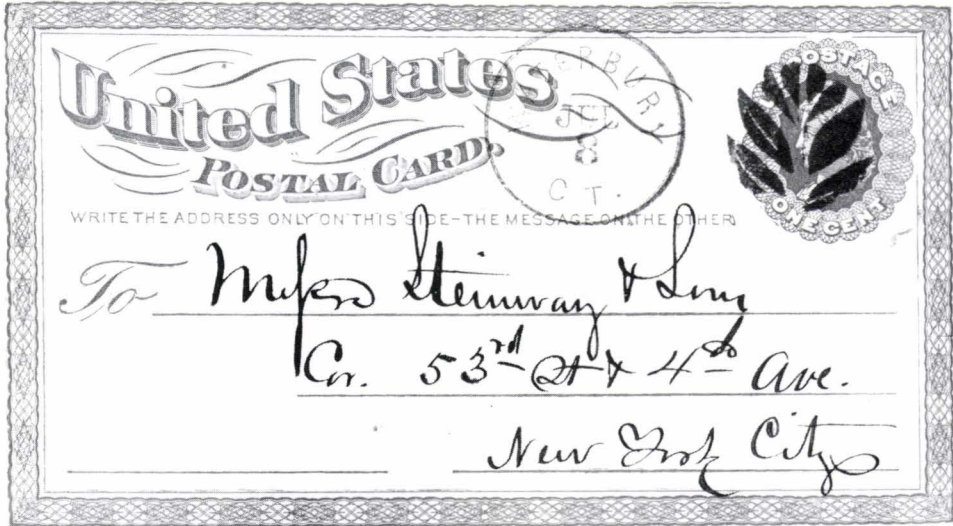 United States
POSTAL CARD.
WATERBURY
JUL
CT.
POSTAGE
ONE CENT
WRITE THE ADDRESS ONLY ON THIS SIDE-THE MESSAGE ON THE OTHER
To Messrs Steinway & Sons
Cor. 53rd St & 4th Ave.
New York City